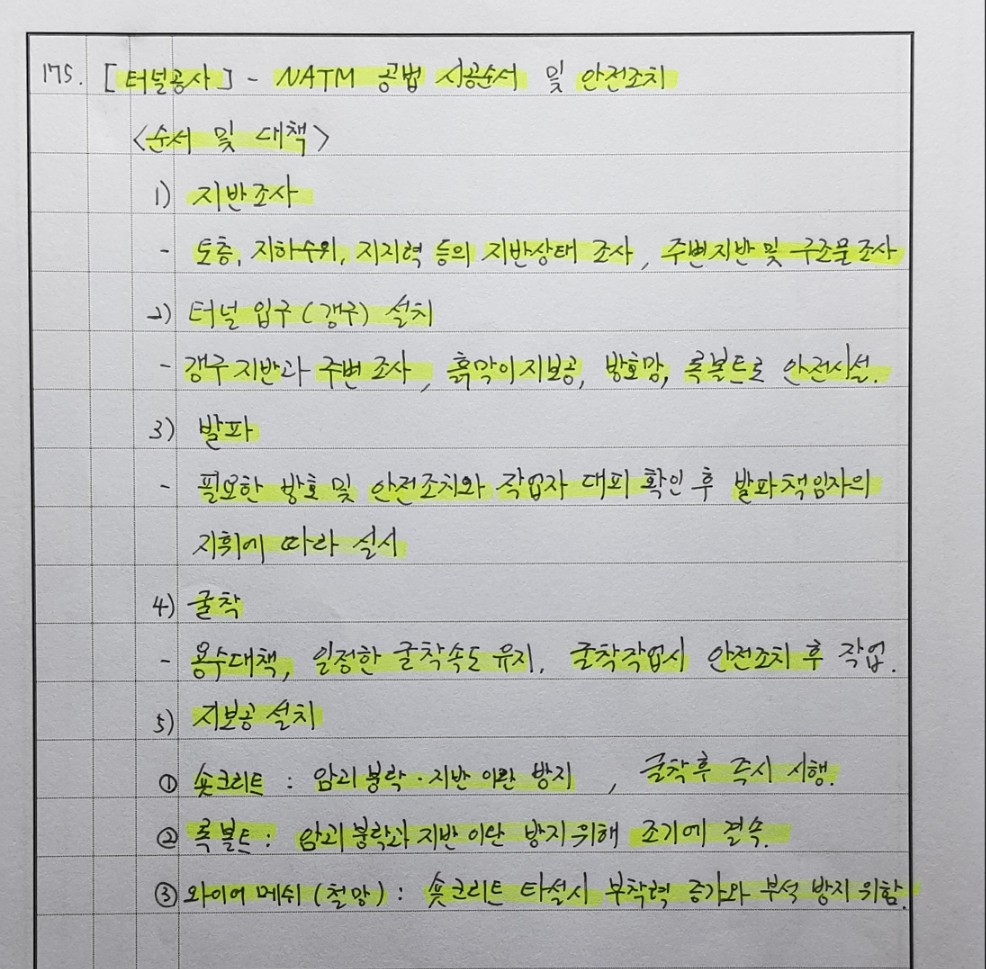 175. [터널공사] - NATM 공법 시공순서 및 안전조치
<순서 및 대책>
1) 지반조사
- 토층, 지하수위, 지지력 등의 지반상태 조사, 주변지반 및 구조물조사
2) 터널 입구(갱구) 설치
- 갱구지반과 주변 조사, 흙막이지보공, 방호망, 록볼트로 안전시설.
3) 발파
- 필요한 방호 및 안전조치와 작업자 대피 확인 후 발파책임자의
지휘에 따라 실시
4) 굴착
- 용수대책, 일정한 굴착속도 유지, 굴착작업시 안전조치 후 작업.
5) 지보공 설치
① 숏크리트 : 암괴붕락·지반 이완 방지, 굴착후 즉시 시행.
② 록볼트 : 암괴붕락과 지반이완 방지위해 조기에 결속.
③ 와이어 메쉬(철망) : 숏크리트 타설시 부착력 증가와 부석 방지 위함.